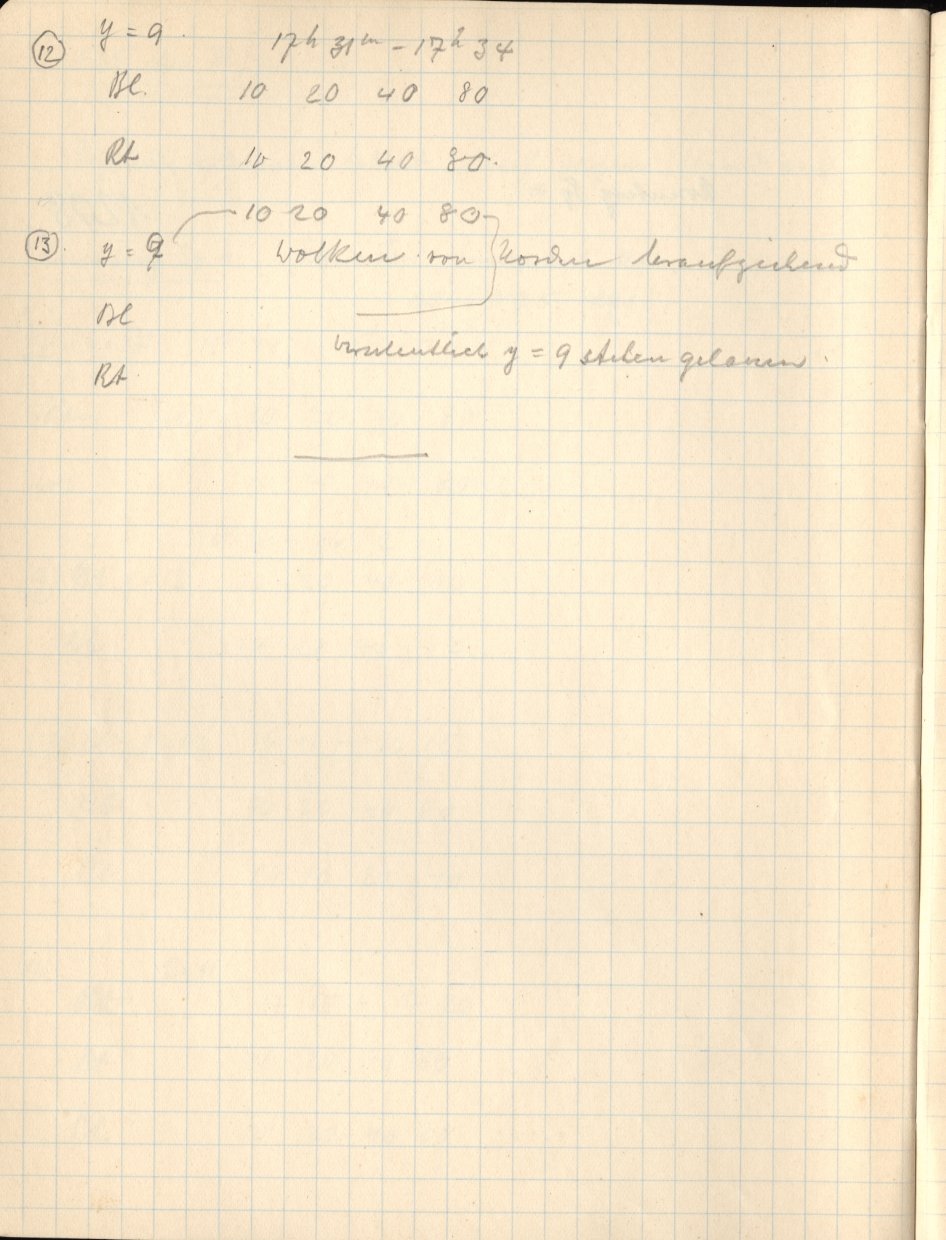 ⑫ y = 9.
17h 31m - 17h 34
Bl. 10 20 40 80
Rt 10 20 40 80.
10 20 40 80
⑬. y = 9
Wolken von Norden heraufziehend
Bl
versehentlich y = 9 stehen gelassen.
Rt